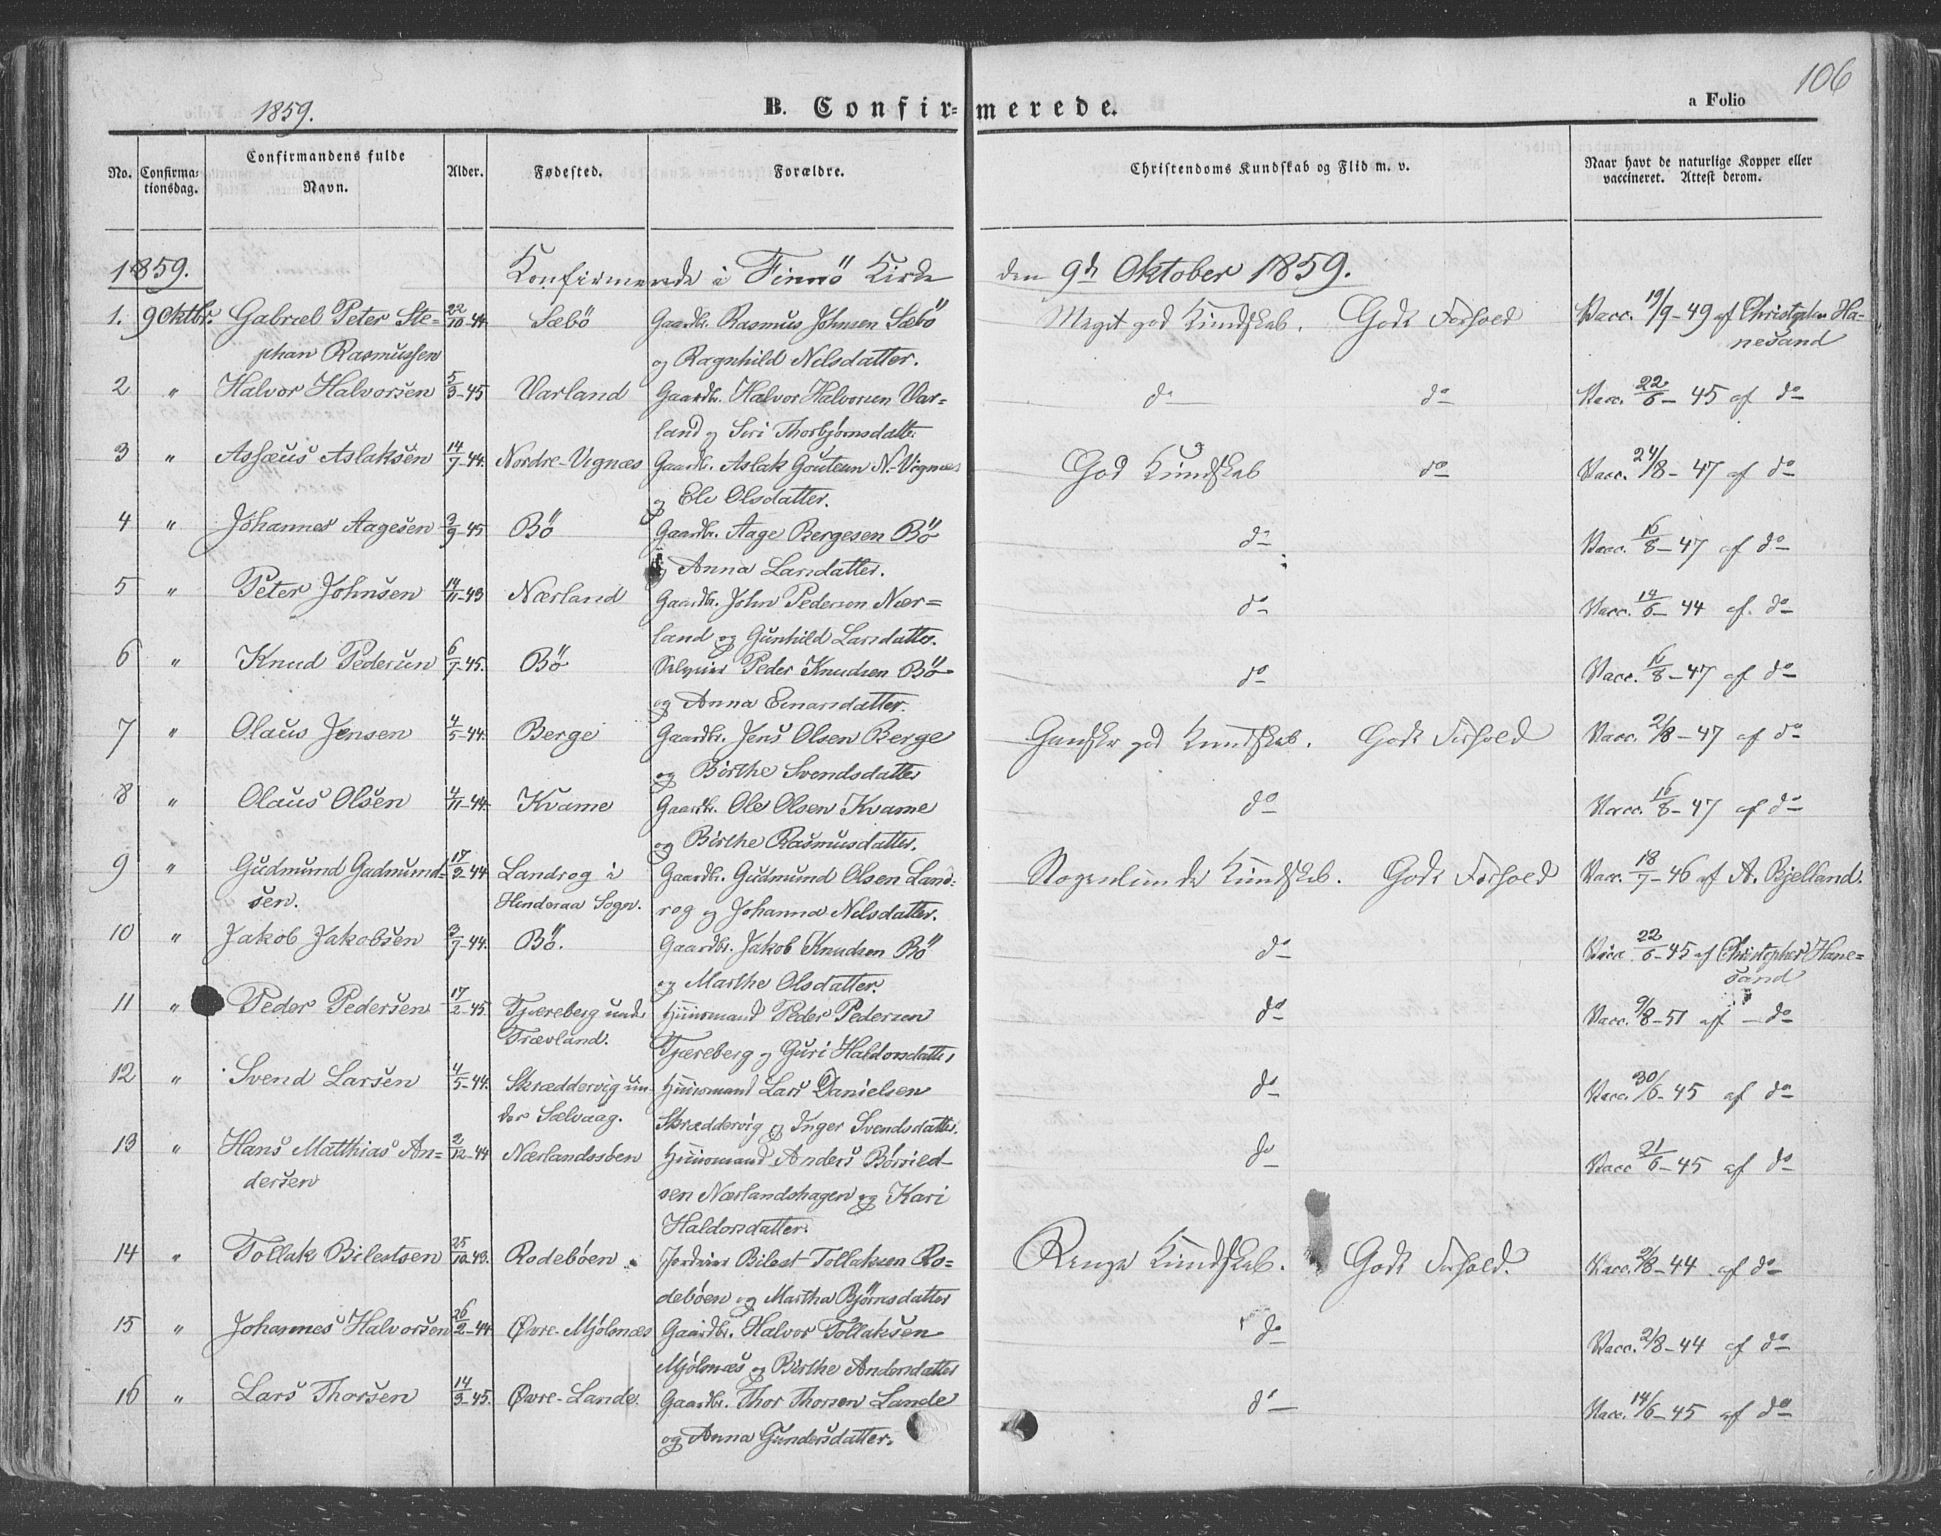 1859.
B. Confirmerede.
a Folio
106
No.
Confirmationsdag.
Confirmandens fulde Navn.
Alder.
Fødested.
Forældre.
Christendoms Kundskab og Flid m. v.
Naar havt de naturlige Kopper eller vaccineret. Attest derom.
1859. Konfirmerede i Finnö Kirke den 9de Oktober 1859.
1. 9 Oktbr. Gabriel Peter Ste- 22/10-44 Sæbö Gaardbr. Rasmus Johnsen Sæbö Meget god Kundskab. Godt Forhold Vacc. 19/9-49 af Christopher Ha-
phan Rasmussen og Ragnhild Nelsdatter. nesand
2 " Halvor Halvorsen 5/3-45 Varland Gaardbr. Halvor Halvorsen Var- do do Vacc. 22/6-45 af do
land og Siri Thorbjørnsdatter
3 " Asseus Aslaksen 14/7-44. Nordre-Vignæs Gaardbr. Aslak Goutesen N-Vignæs God Kundskab do Vacc. 24/8-47 af do
og Eli Olsdatter.
4 " Johannes Aagesen 3/9-45 Bö Gaardbr. Aage Bergesen Bö do Vacc. 16/8-47 af do
og Anna Larsdatter.
5 " Peter Johnsen 14/11-43 Nærland Gaardbr. John Pedersen Nær- do Vacc. 14/6-44 af. do
land og Gunhild Larsdatter.
6 " Knud Pedersen 6/7-45. Bö Selveier Peder Knudsen Bö do Vacc. 16/8-47 af do
og Anna Einarsdatter.
7 " Olaus Jensen 4/5-44. Berge Gaardbr. Jens Olsen Berge Ganske god Kundskab. Godt Forhold Vacc. 2/8-47 af do
og Börthe Svendsdatter
8 " Olaus Olsen 4/11-44. Kvame Gaardbr. Ole Olsen Kvame do Vacc. 16/8-47 af do
og Birthe Rasmusdatter.
9 " Gudmund Gudmund- 17/2-44 Landrog i Gaardbr. Gudmund Olsen Land- Nogenlunde Kundskab. Godt Forhold Vacc. 18/7-46 af A. Bjelland.
sen. Hinderaa Sogn. rog og Johanna Nilsdatter.
10 " Jakob Jakobsen 3/7-44. Bö. Gaardbr. Jakob Knudsen Bö do Vacc. 22/6-45 af Christopher Hane-
og Marthe Olsdatter. sand
11 " Peder Pedersen 17/2-45 Tjæreberg under Huusmand Peder Pedersen do Vacc. 9/8-51 af - do
Trævland. Tjæreberg og Guri Haldorsdatter
12 " Svend Larsen 4/5-44. Skræddervig un- Huusmand Lars Danielsen do Vacc. 30/6-45 af do
der Sælvaag. Skræddervig og Inger Svendsdatter.
13 " Hans Matthias An- 2/12-44 Nærlandssben Huusmand Anders Börild- do Vacc 21/6-45 af do
dersen sen Nærlandshagen og Kari
Haldorsdatter.
14 " Tollak Bilestsen 25/10-43. Rodebøen. Jordeier Bilest Tollaksen Ro- Ringe Kundskab. Godt Forhold. Vacc. 2/8-44 af do
debøen og Martha Bjørnsdatter
15 " Johannes Halvorsen 26/2-44 Øvre-Mjølsnæs Gaardbr. Halvor Tollaksen do Vacc. 2/8-44 af do
Mjølsnæs og Birthe Andersdatter
16 " Lars Thorsen 14/3-45. Øvre-Lande. Gaardbr. Thor Thorsen Lande do Vacc. 14/6-45 af do
og Anna Gundersdatter.